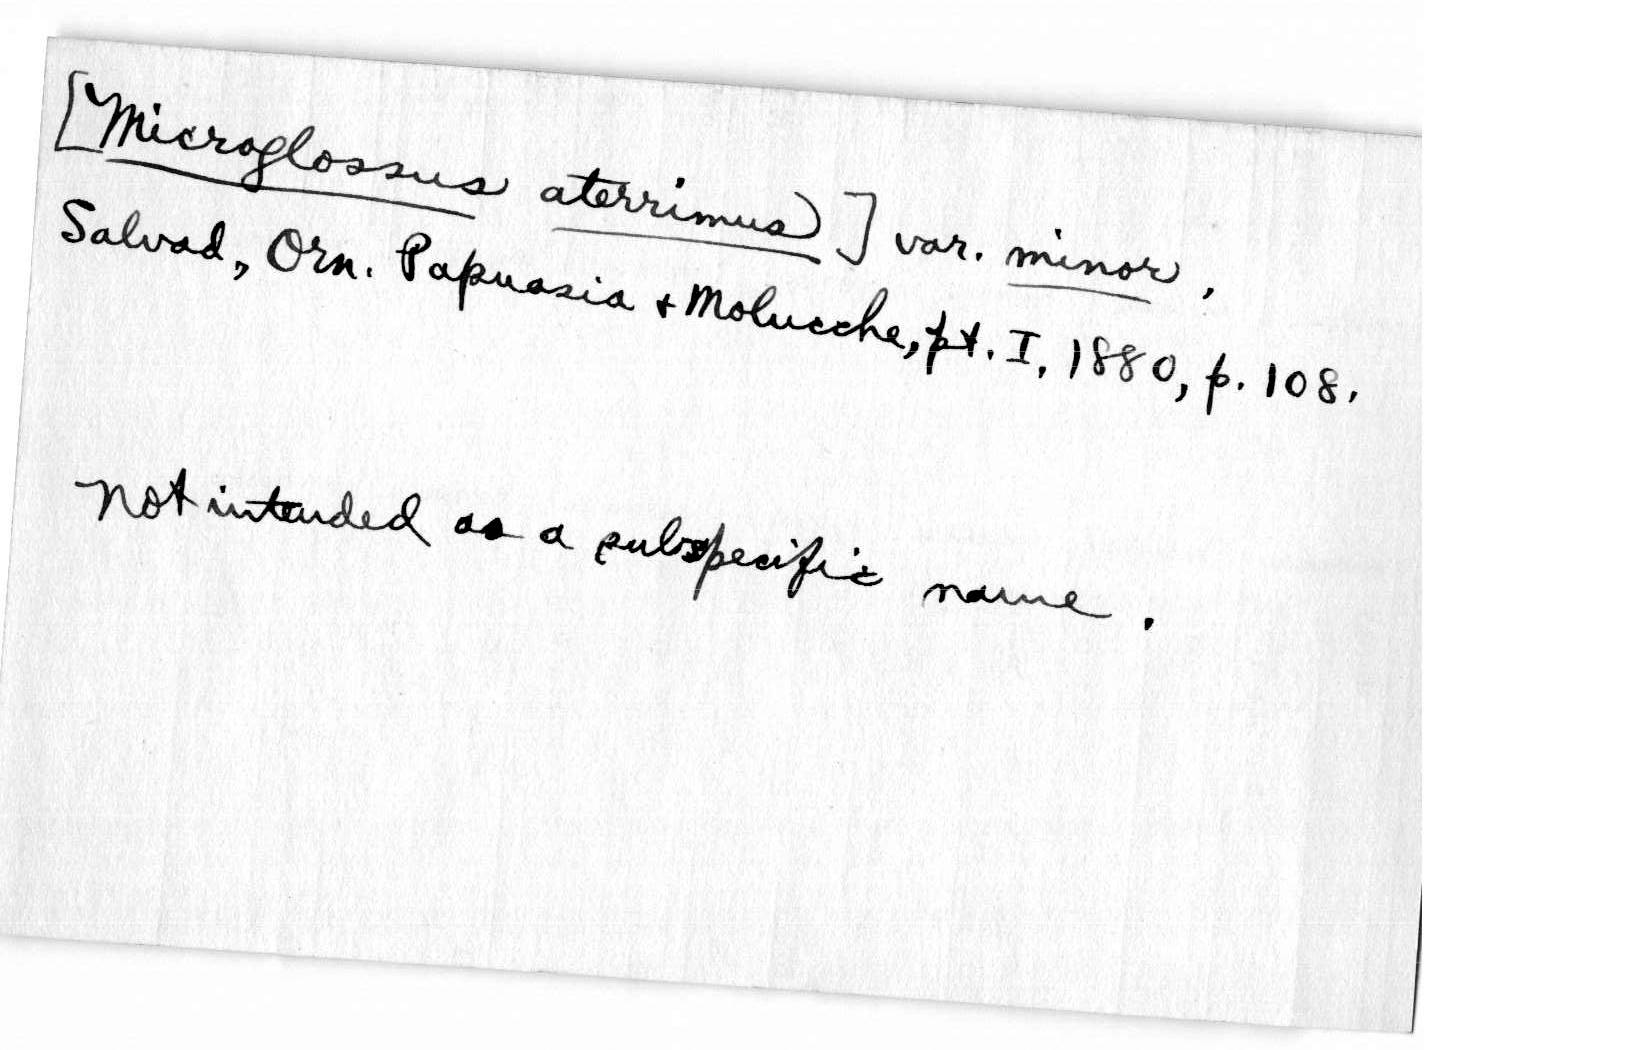 [Microglossus aterrimus] var. minor,
Salvad, Orn. Papuasia + Molucche, pt. I, 1880, p. 108.
Not intended as a subspecific name.